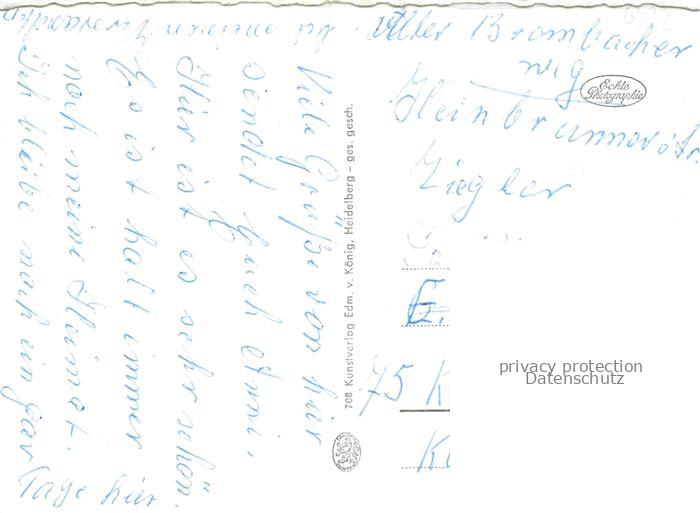 Viele Grüße von hier
sendet Euch Emmi,
Hier ist es sehr schön.
Es ist halt immer
noch meine Heimat.
Ich bleibe noch ein paar
Tage hier
bei meinen Verwandten
708 Kunstverlag Edm. v. König, Heidelberg – ges. gesch.
Alter Brombacher
weg
Echte
Photographie
Steinbrunnerstr.
Ziegler
75 K
privacy protection
Datenschutz